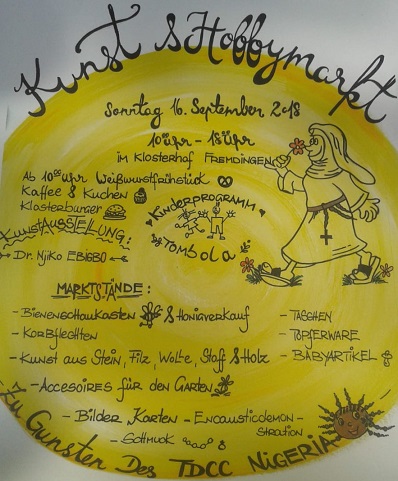 Kunst & Hobbymarkt
Sonntag 16. September 2018
10 Uhr - 18 Uhr
im Klosterhof Fremdingen
Ab 10 Uhr Weißwurstfrühstück
Kaffee & Kuchen
Klosterburger
Kinderprogramm
KunstAUSSTELLUNG:
Dr. Njiko EBIGBO
TOMBOLA
MARKTSTÄNDE:
- Bienenschaukasten & Honigverkauf
- Korbflechten
- Kunst aus Stein, Filz, Wolle, Stoff & Holz
- Accesoires für den Garten
- Bilder Karten - Encausticdemon-
stration
- Schmuck
- TASCHEN
- TÖPFERWARE
- BABYARTIKEL
Zu Gunsten Des TDCC NIGERIA